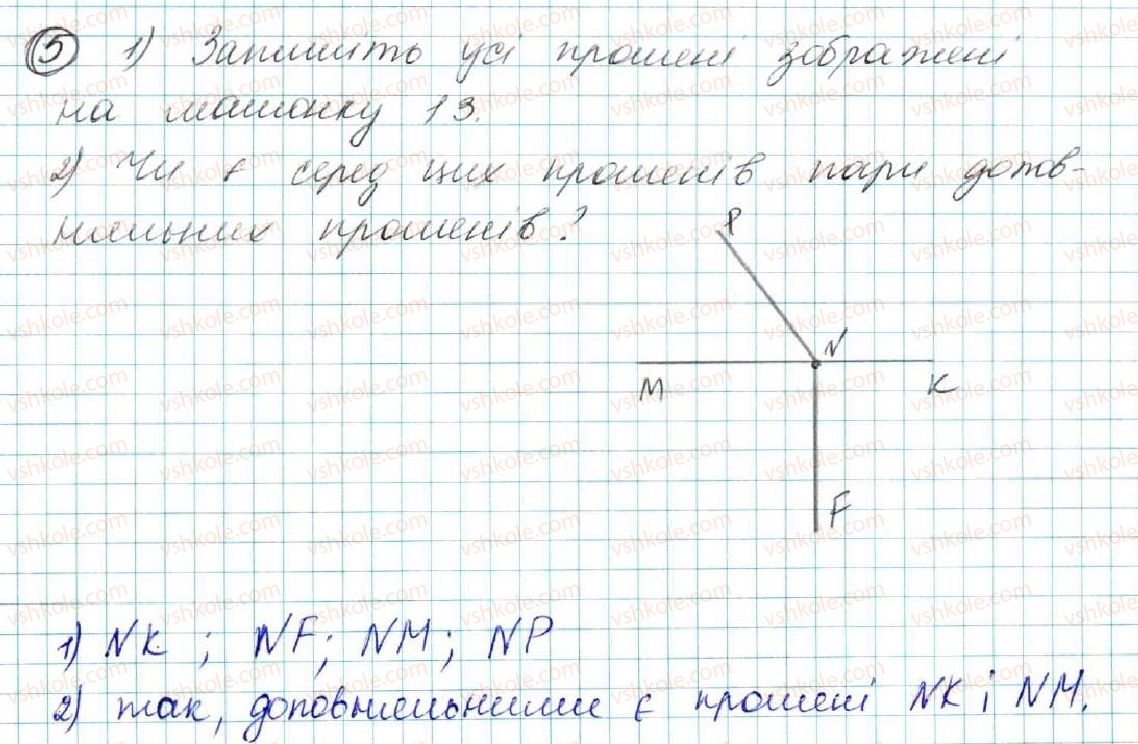 5 1) Запишіть усі промені зображені
на малюнку 13.
2) Чи є серед цих променів пари допов-
няльних променів?
P
N
M
K
F
1) NK ; NF; NM; NP
2) так, доповняльними є промені NK і NM.